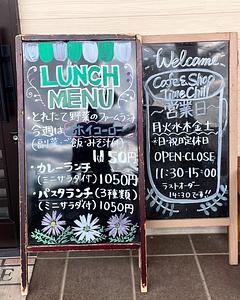 LUNCH
MENU
・とれたて野菜のファームランチ
今週は ホイコーロー
(副菜・ご飯・みそ汁付)
1150円
・カレーランチ
(ミニサラダ付) 1050円
・パスタランチ (3種類)
(ミニサラダ付) 1050円
Welcome
Cafe & Shop
Time Chill
〜営業日〜
月火水木金土
※日・祝定休日
OPEN-CLOSE
11:30-15:00
ラストオーダー
14:30です!!